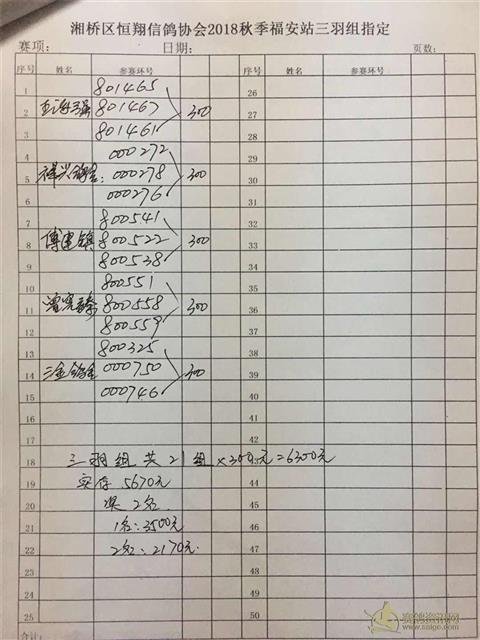 湘桥区恒翔信鸽协会2018秋季福安站三羽组指定
赛项： 日期： 页数：
序号 姓名 参赛环号 序号 姓名 参赛环号
1 801465 26
2 801467 300 27
3 801461 28
4 000272 29
5 祥兴鸽舍: 000278 300 30
6 000276 31
7 800541 32
8 傅建镇 800522 300 33
9 800538 34
10 800551 35
11 800558 300 36
12 800559 37
13 800325 38
14 三金鸽舍 000750 300 39
15 000746 40
16 41
17 42
18 三羽组共21组×300元=6300元
19 实存5670元 44
20 奖2名 45
21 1名:3500元 46
22 2名:2170元. 47
23 48
24 49
25 50
合计：
赛鸽资讯网
www.saige.com